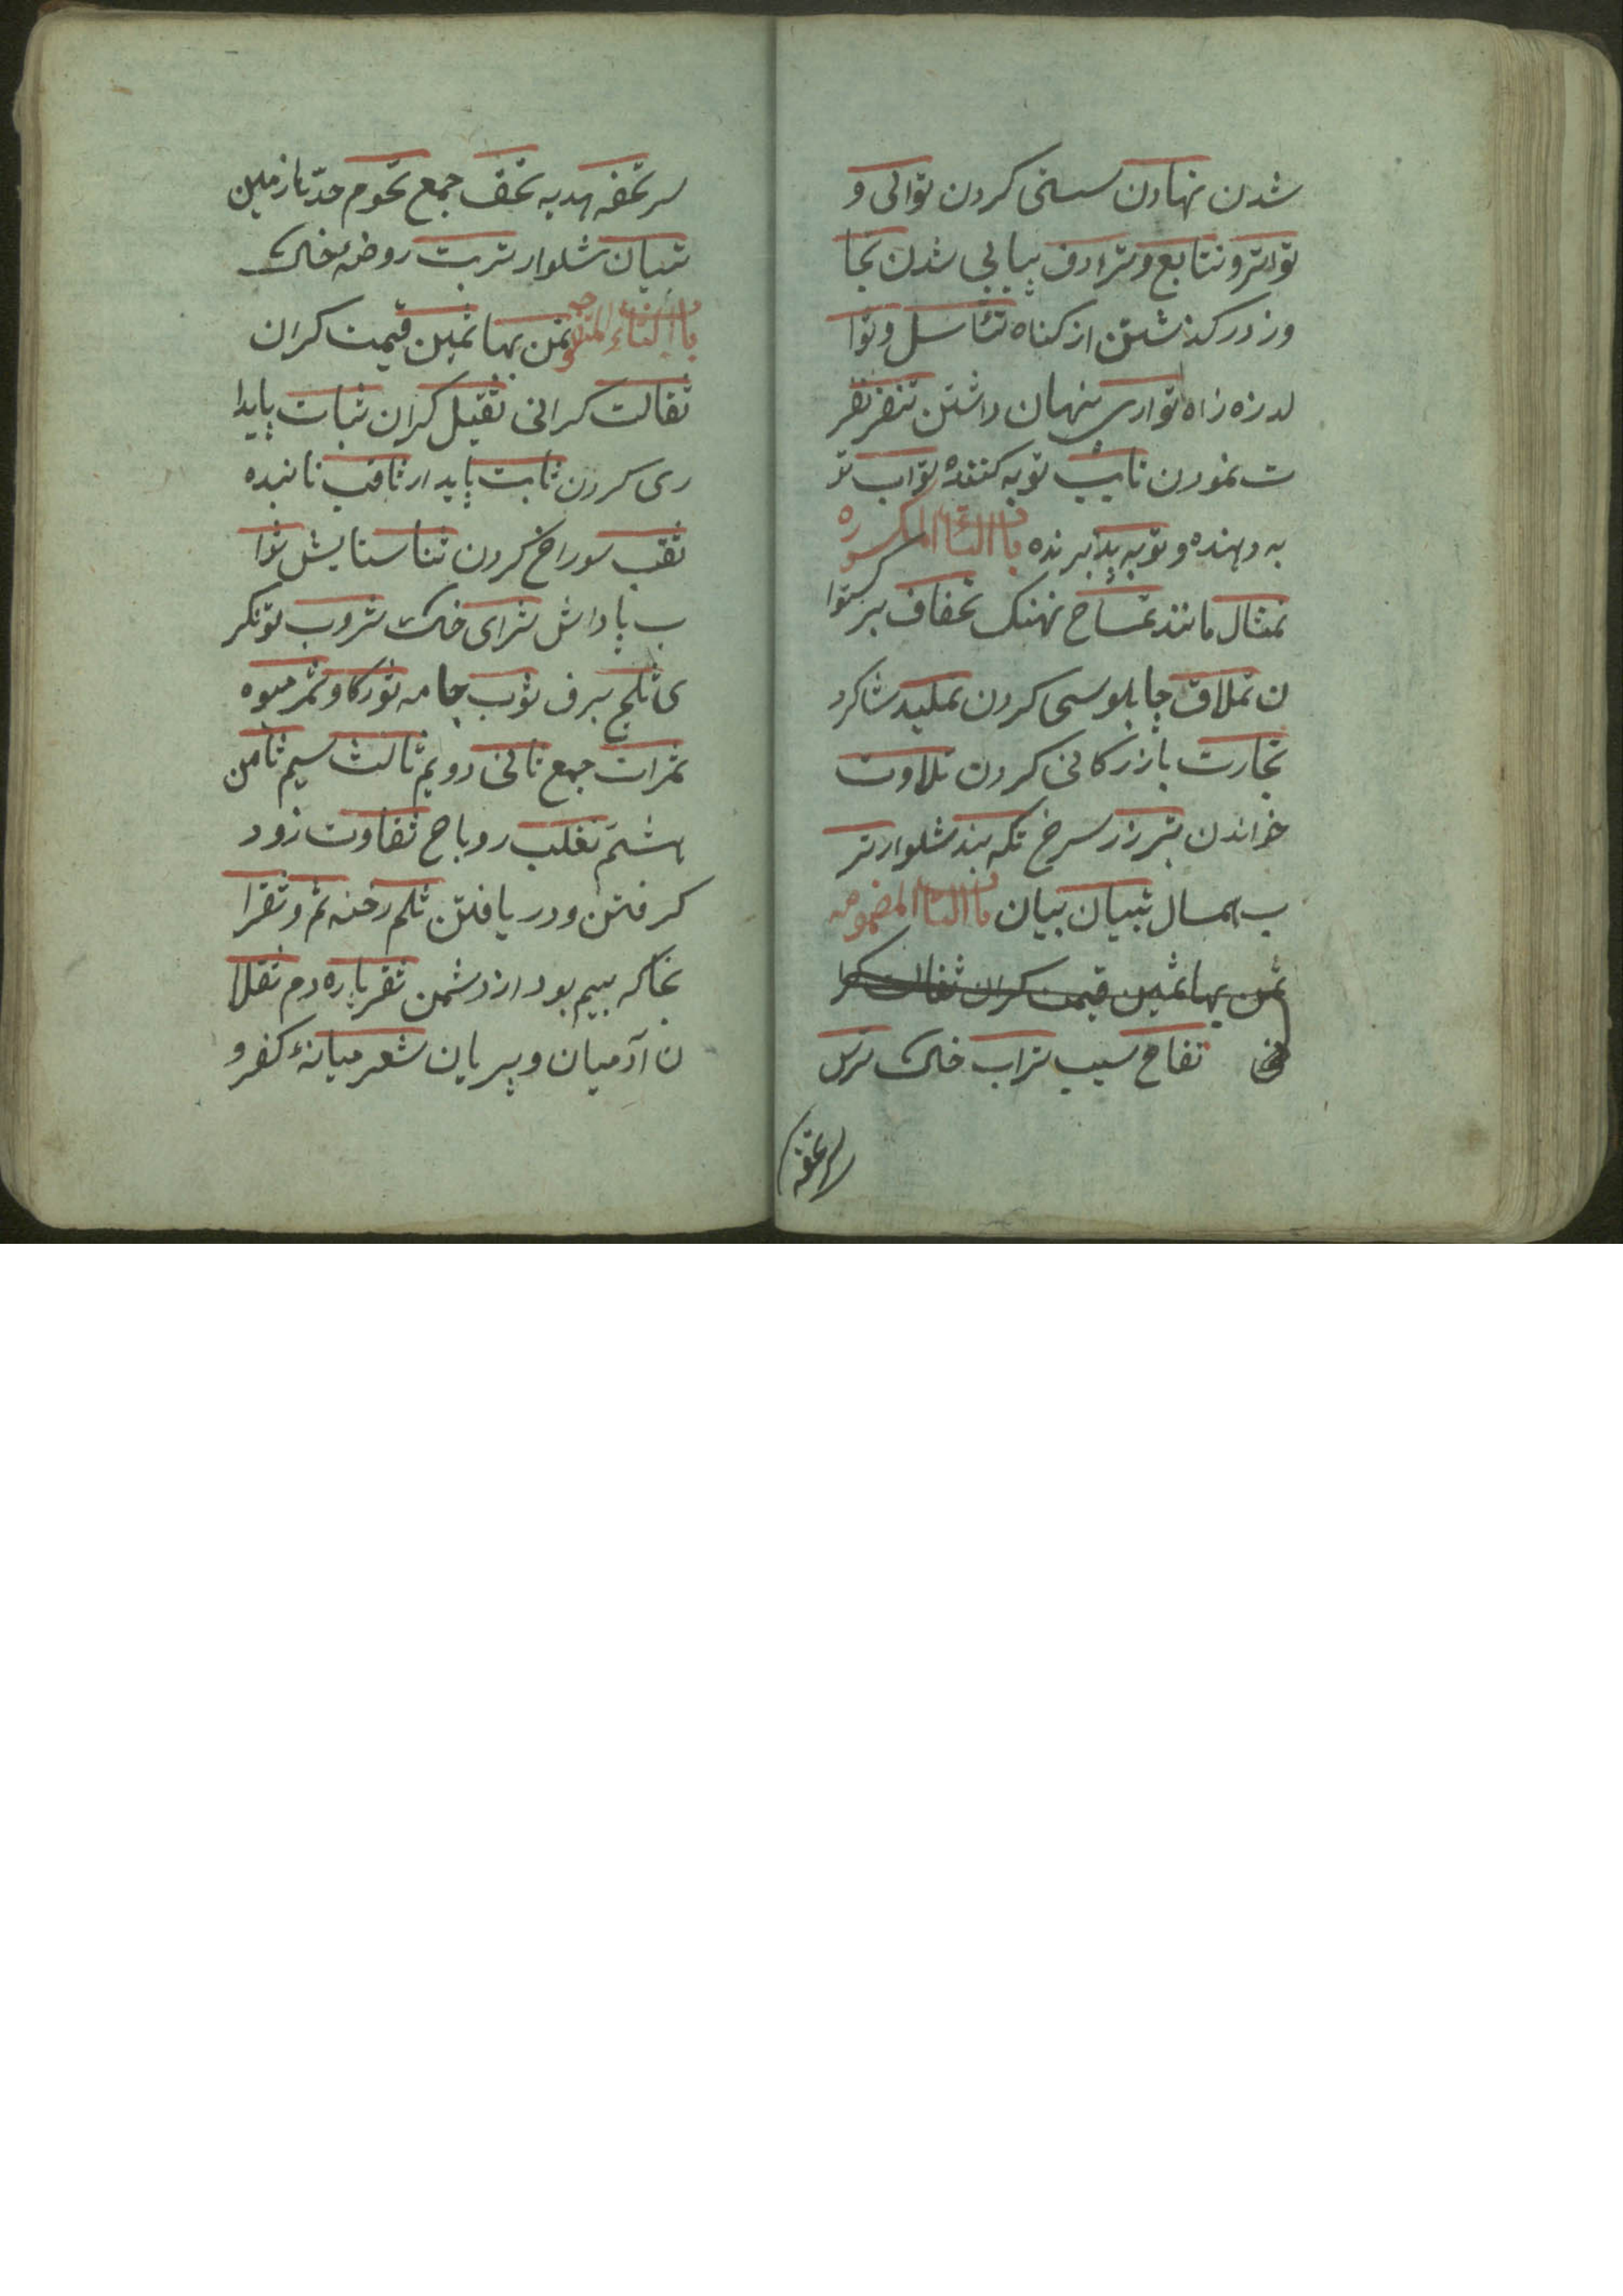 شدن نهادن سستی کردن توالی و
تواتر و تتابع و ترادف پیاپی شدن تجا
وز در کذشتن از کناه تناسل و توا
لد زه زاه تواری پنهان داشتن تنفر نفر
ت نمودن تایب توبه کننده تواب تو
به دهنده و توبه پذیرنده باب التاء المکسوره
تمثال مانند تمساح نهنک تجفاف برکستوا
ن تملاق چاپلوسی کردن تملید شاکرد
تجارت بازرکانی کردن تلاوت
خواندن تبر زر سرخ تکه بند شلوار تر
ب همسال تبیان بیان باب التاء المضمومه
ثمن بها ثمین قیمت کران ثقالت کرا
نی تفاح سیب تراب خاک ترس
سر تحفه
سر تحفه هدیه تحف جمع تخوم حدّها زمین
تبیان شلوار تربت روضه خاک
باب الثاء المفتوحه ثمن بها ثمین قیمت کران
ثقالت کرانی ثقیل کران ثبات پایدا
ری کردن ثابت پایدار ثاقب تابنده
ثقب سوراخ کردن ثنا ستایش ثوا
ب پاداش ثرای خاک ثروب تونکر
ی ثلج برف ثوب جامه ثور کاو ثمر میوه
ثمرات جمع ثانی دویم ثالث سیم ثامن
هشتم ثعلب روباح ثقاوت زود
کرفتن و دریافتن ثلم رخنه ثم و ثغر ا
نجا که بیم بود از دشمن ثفر پاره دم ثقلا
ن آدمیان و پریان ثغر میانهٔ کفر و